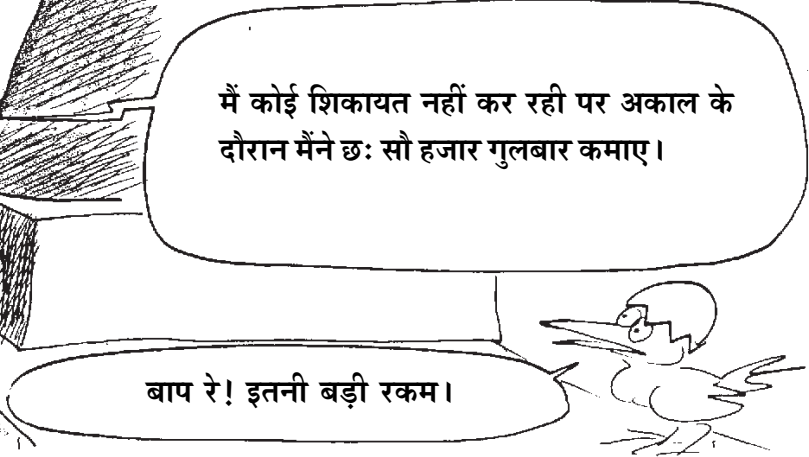 मैं कोई शिकायत नहीं कर रही पर अकाल के
दौरान मैंने छः सौ हजार गुलबार कमाए।
बाप रे! इतनी बड़ी रकम।